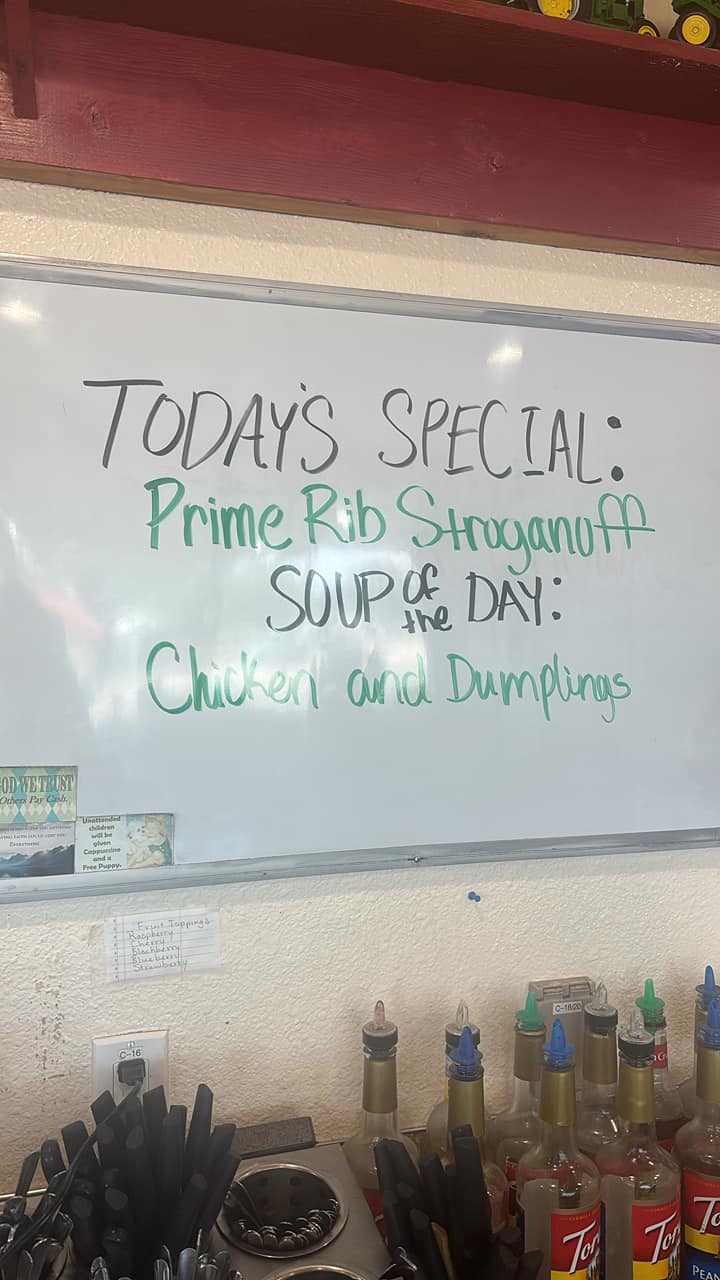 TODAY'S SPECIAL:
Prime Rib Stroganoff
SOUP of the DAY:
Chicken and Dumplings
OD WE TRUST
Others Pay Cash.
EVERYTHING
Unattended
children
will be
given
Cappuccino
and a
Free Puppy.
Fruit Toppings
Raspberry
Cherry
Blackberry
Blueberry
Strawberry
C-16
C-18/20
Tor
Tor
To
PEAN